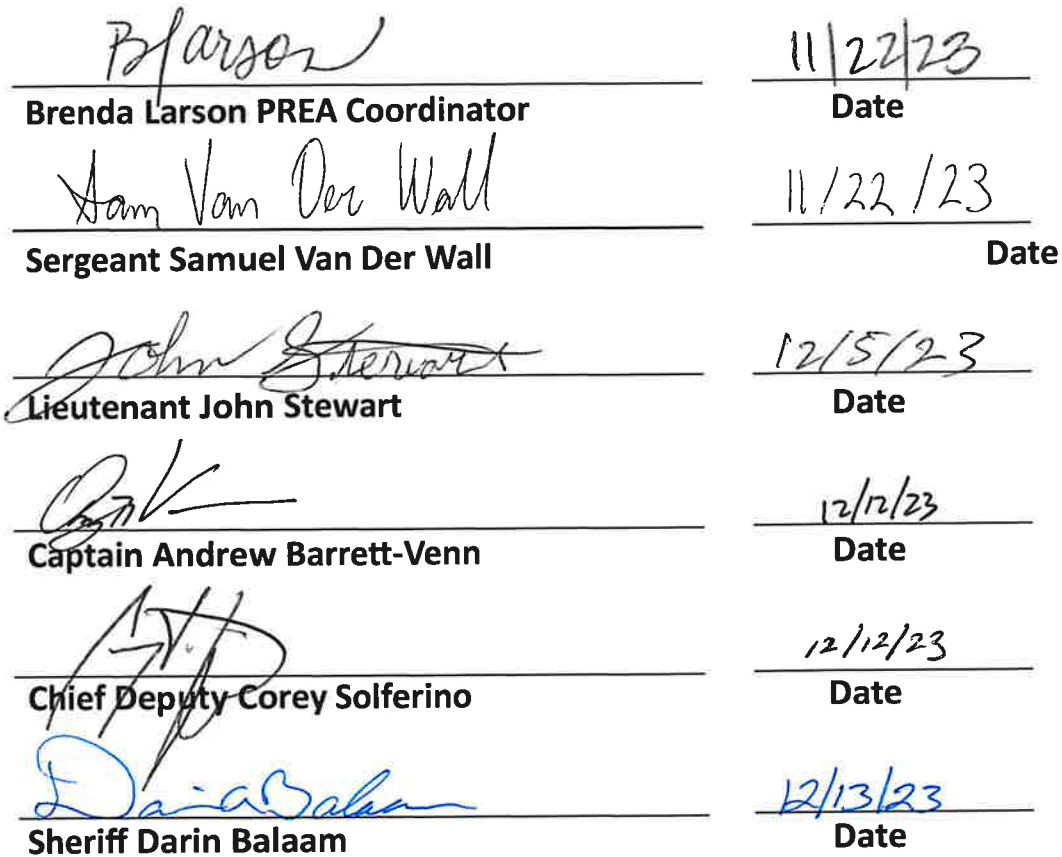 BLarson 11/22/23
Brenda Larson PREA Coordinator Date
Sam Van Der Wall 11/22/23
Sergeant Samuel Van Der Wall Date
John Stewart 12/5/23
Lieutenant John Stewart Date
12/12/23
Captain Andrew Barrett-Venn Date
12/12/23
Chief Deputy Corey Solferino Date
Darin Balaam 12/13/23
Sheriff Darin Balaam Date